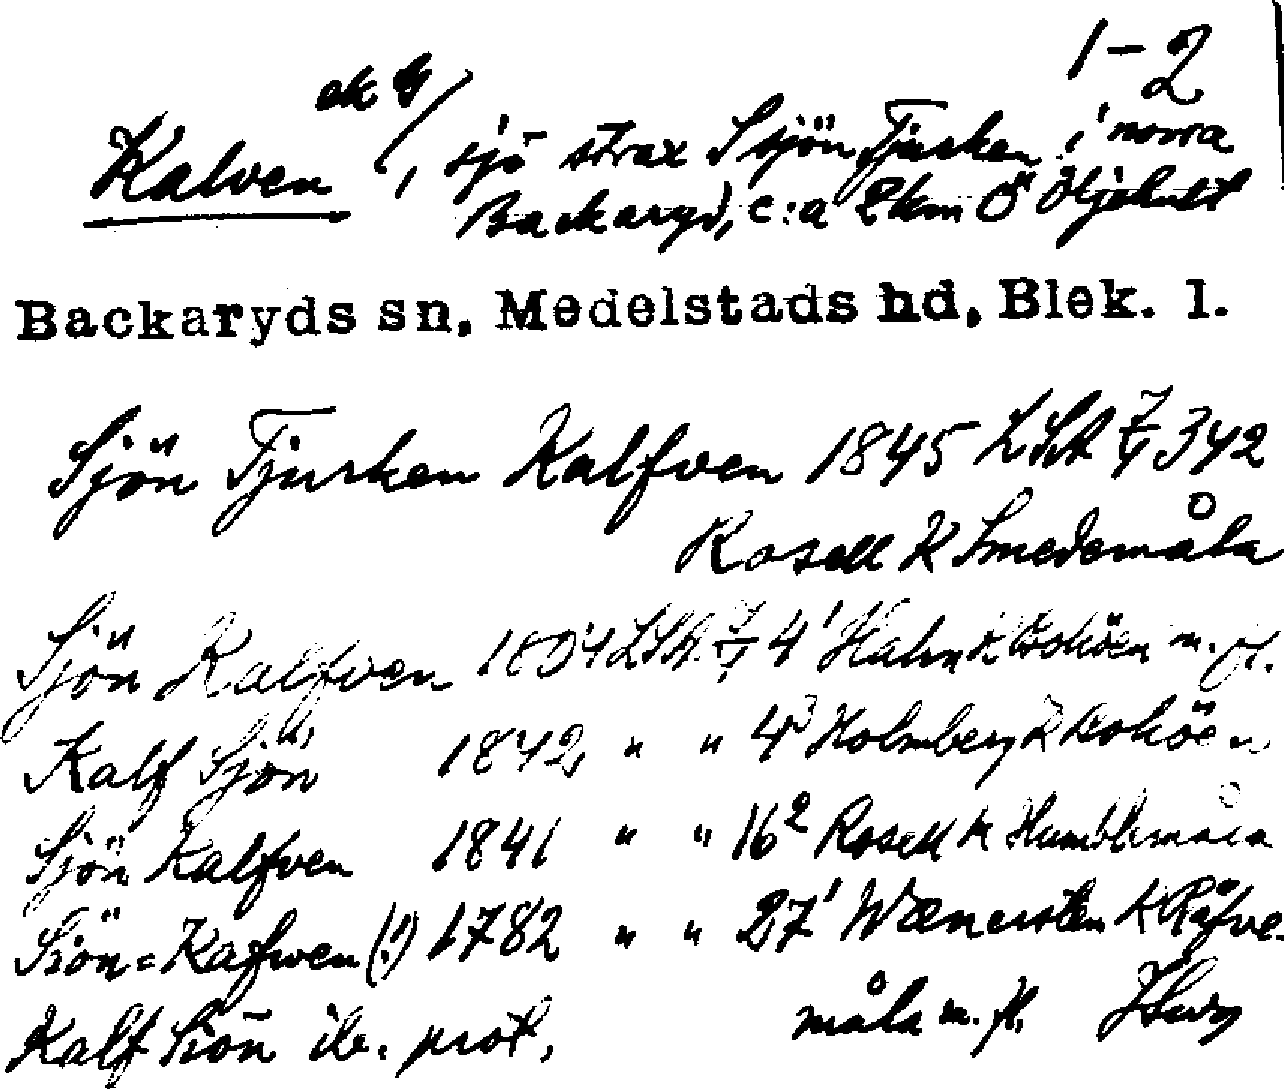 1-2
Kalven ek 4/, sjö strax S sjön Tjurken i norra
Backaryd, c:a 2km Ö Öljehult
Backaryds sn, Medelstads hd, Blek. l.
Sjön Tjurken Kalfven 1845 LSA 7/7 342
Rosell K Smedemåla
Sjön Kalfven 1804 LSA. 7/7 4¹ Hahn K Boköen m. fl.
Kalf Sjön 1842 " " 4³ Holmberg K Boköen
Sjön Kalfven 1841 " " 16² Rosell K Humblemåla
Siön=Kafwen (!) 1782 " " 27¹ Wænersten K Räfve-
måla m. fl.
Kalf Siön ib. prot.